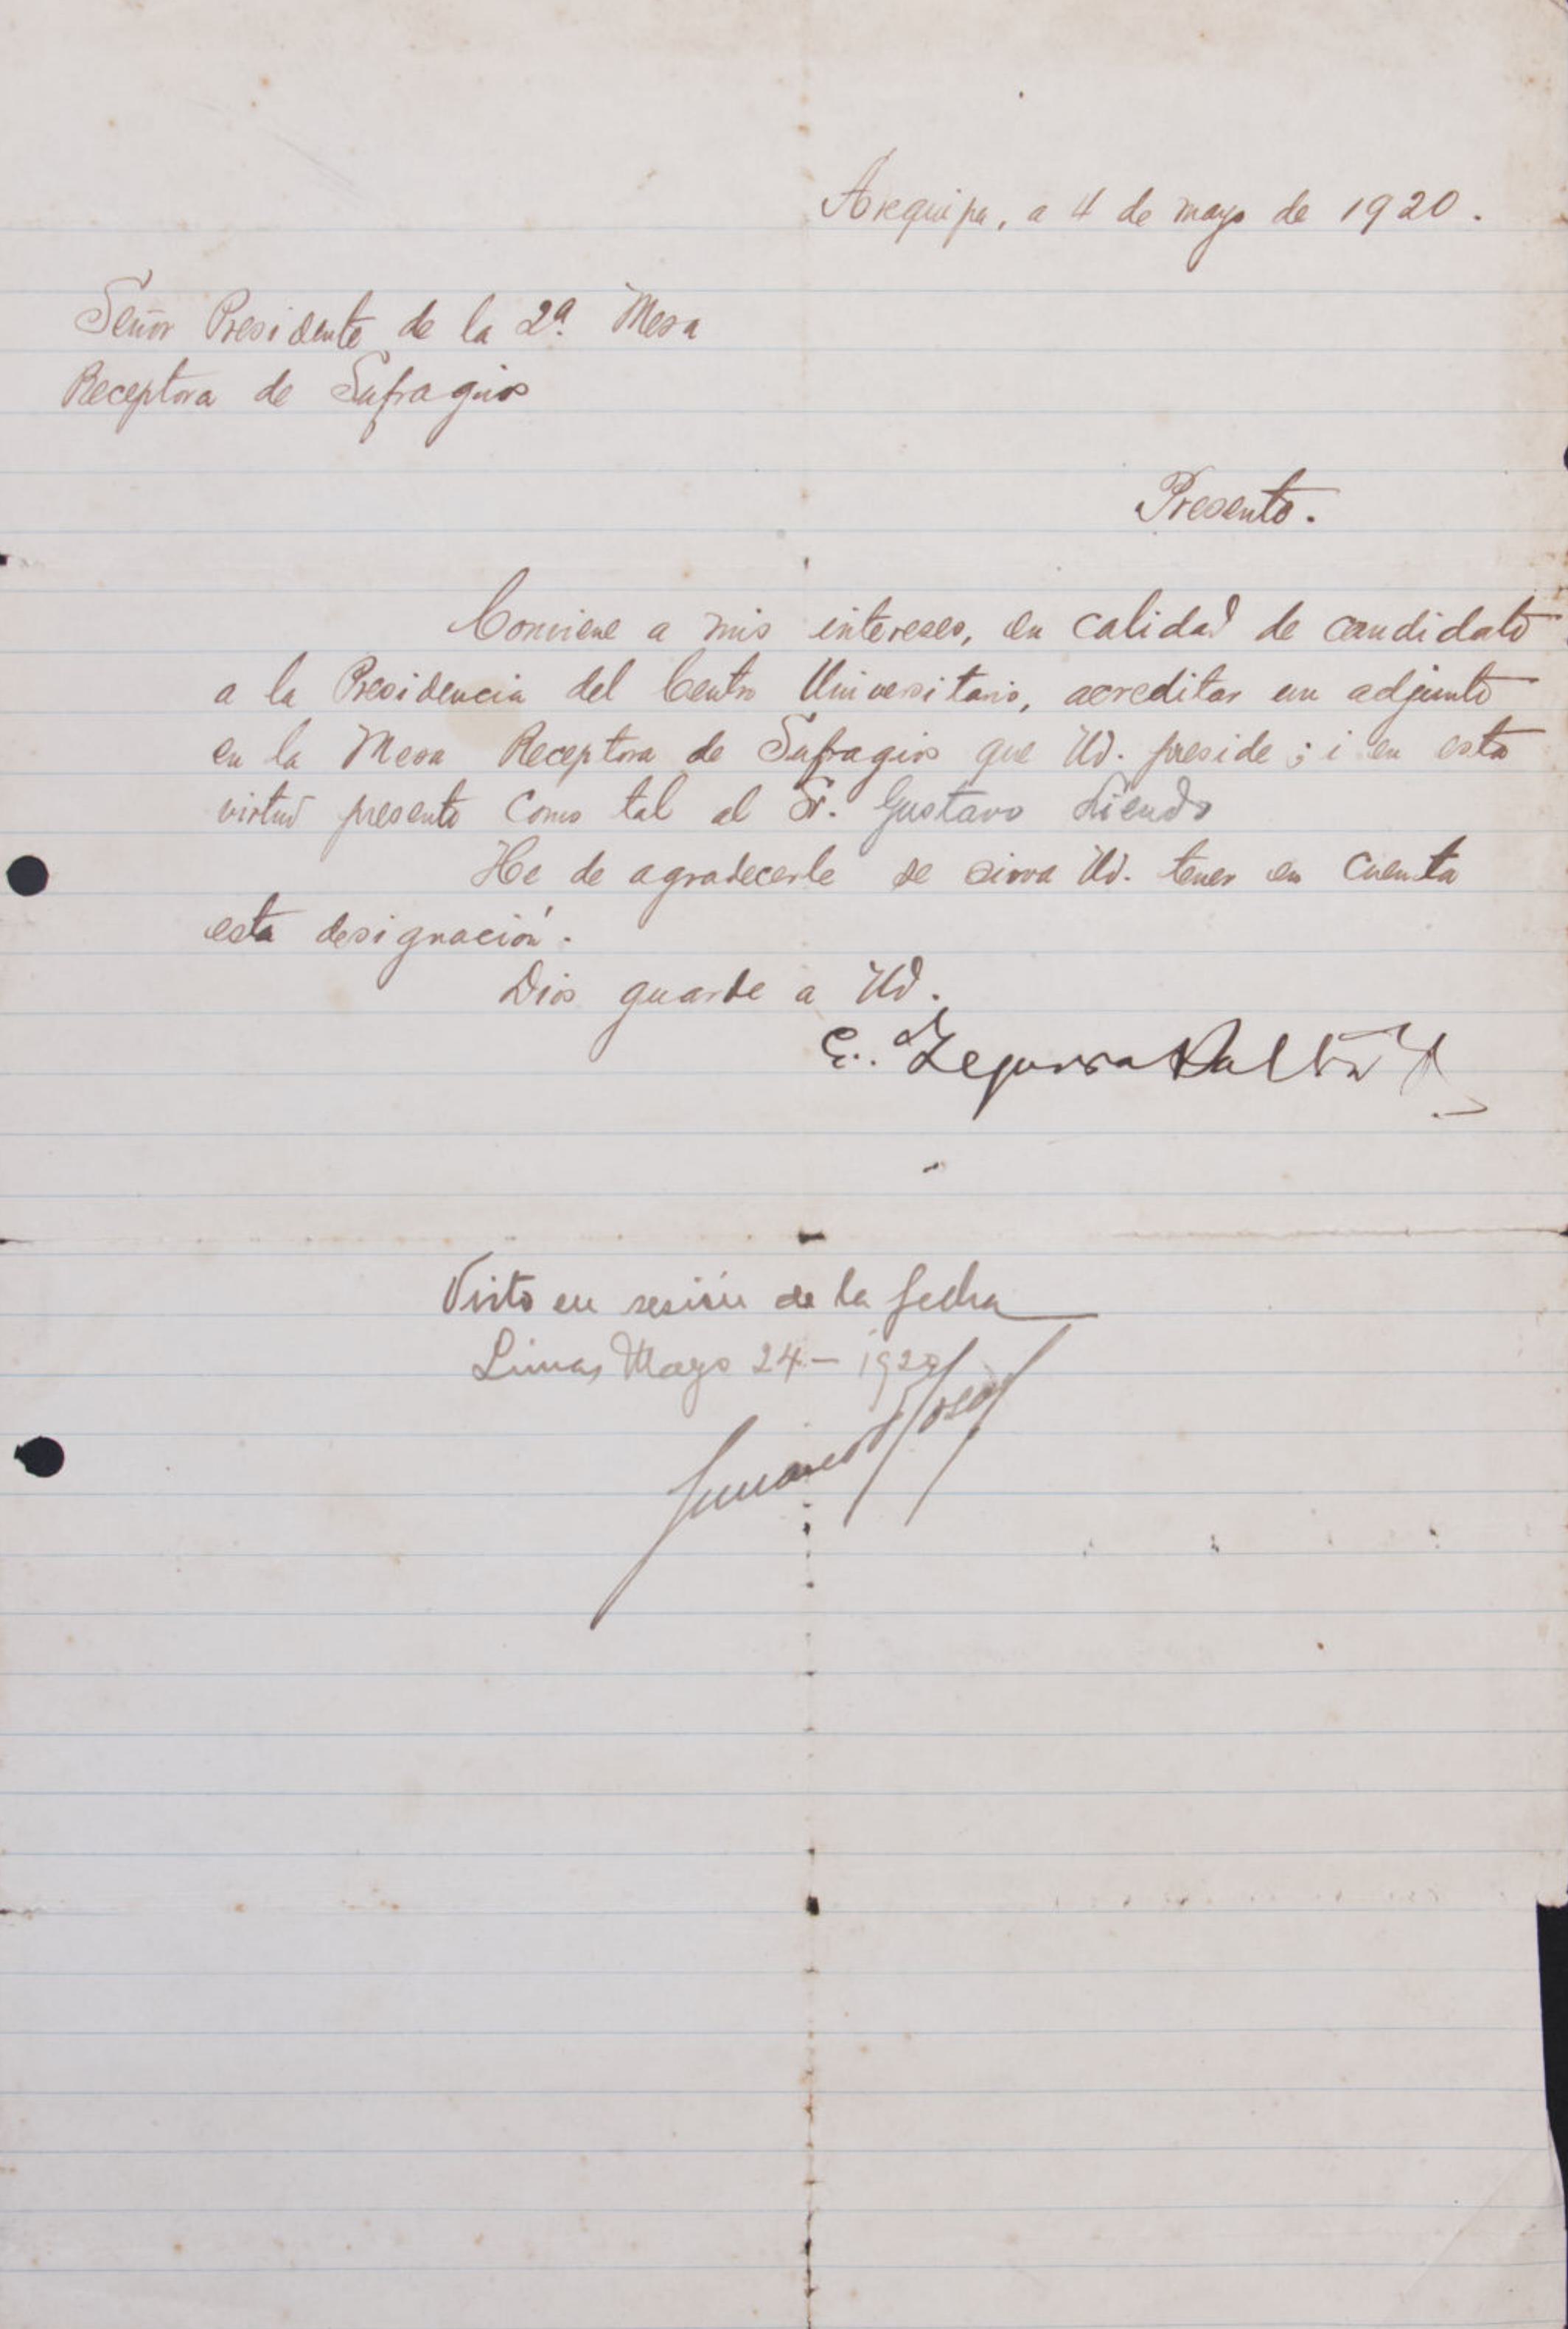 Arequipa, a 4 de mayo de 1920.
Señor Presidente de la 2ª. Mesa
Receptora de Sufragios
Presente.
Conviene a mis intereses, en calidad de candidato
a la Presidencia del Centro Universitario, acreditar un adjunto
en la Mesa Receptora de Sufragios que Ud. preside; i en esta
virtud presento como tal al Sr. Gustavo Liendo
He de agradecerle se sirva Ud. tener en cuenta
esta designación.
Dios guarde a Ud.
C. Zegarra
Visto en sesión de la fecha
Lima, Mayo 24-1920